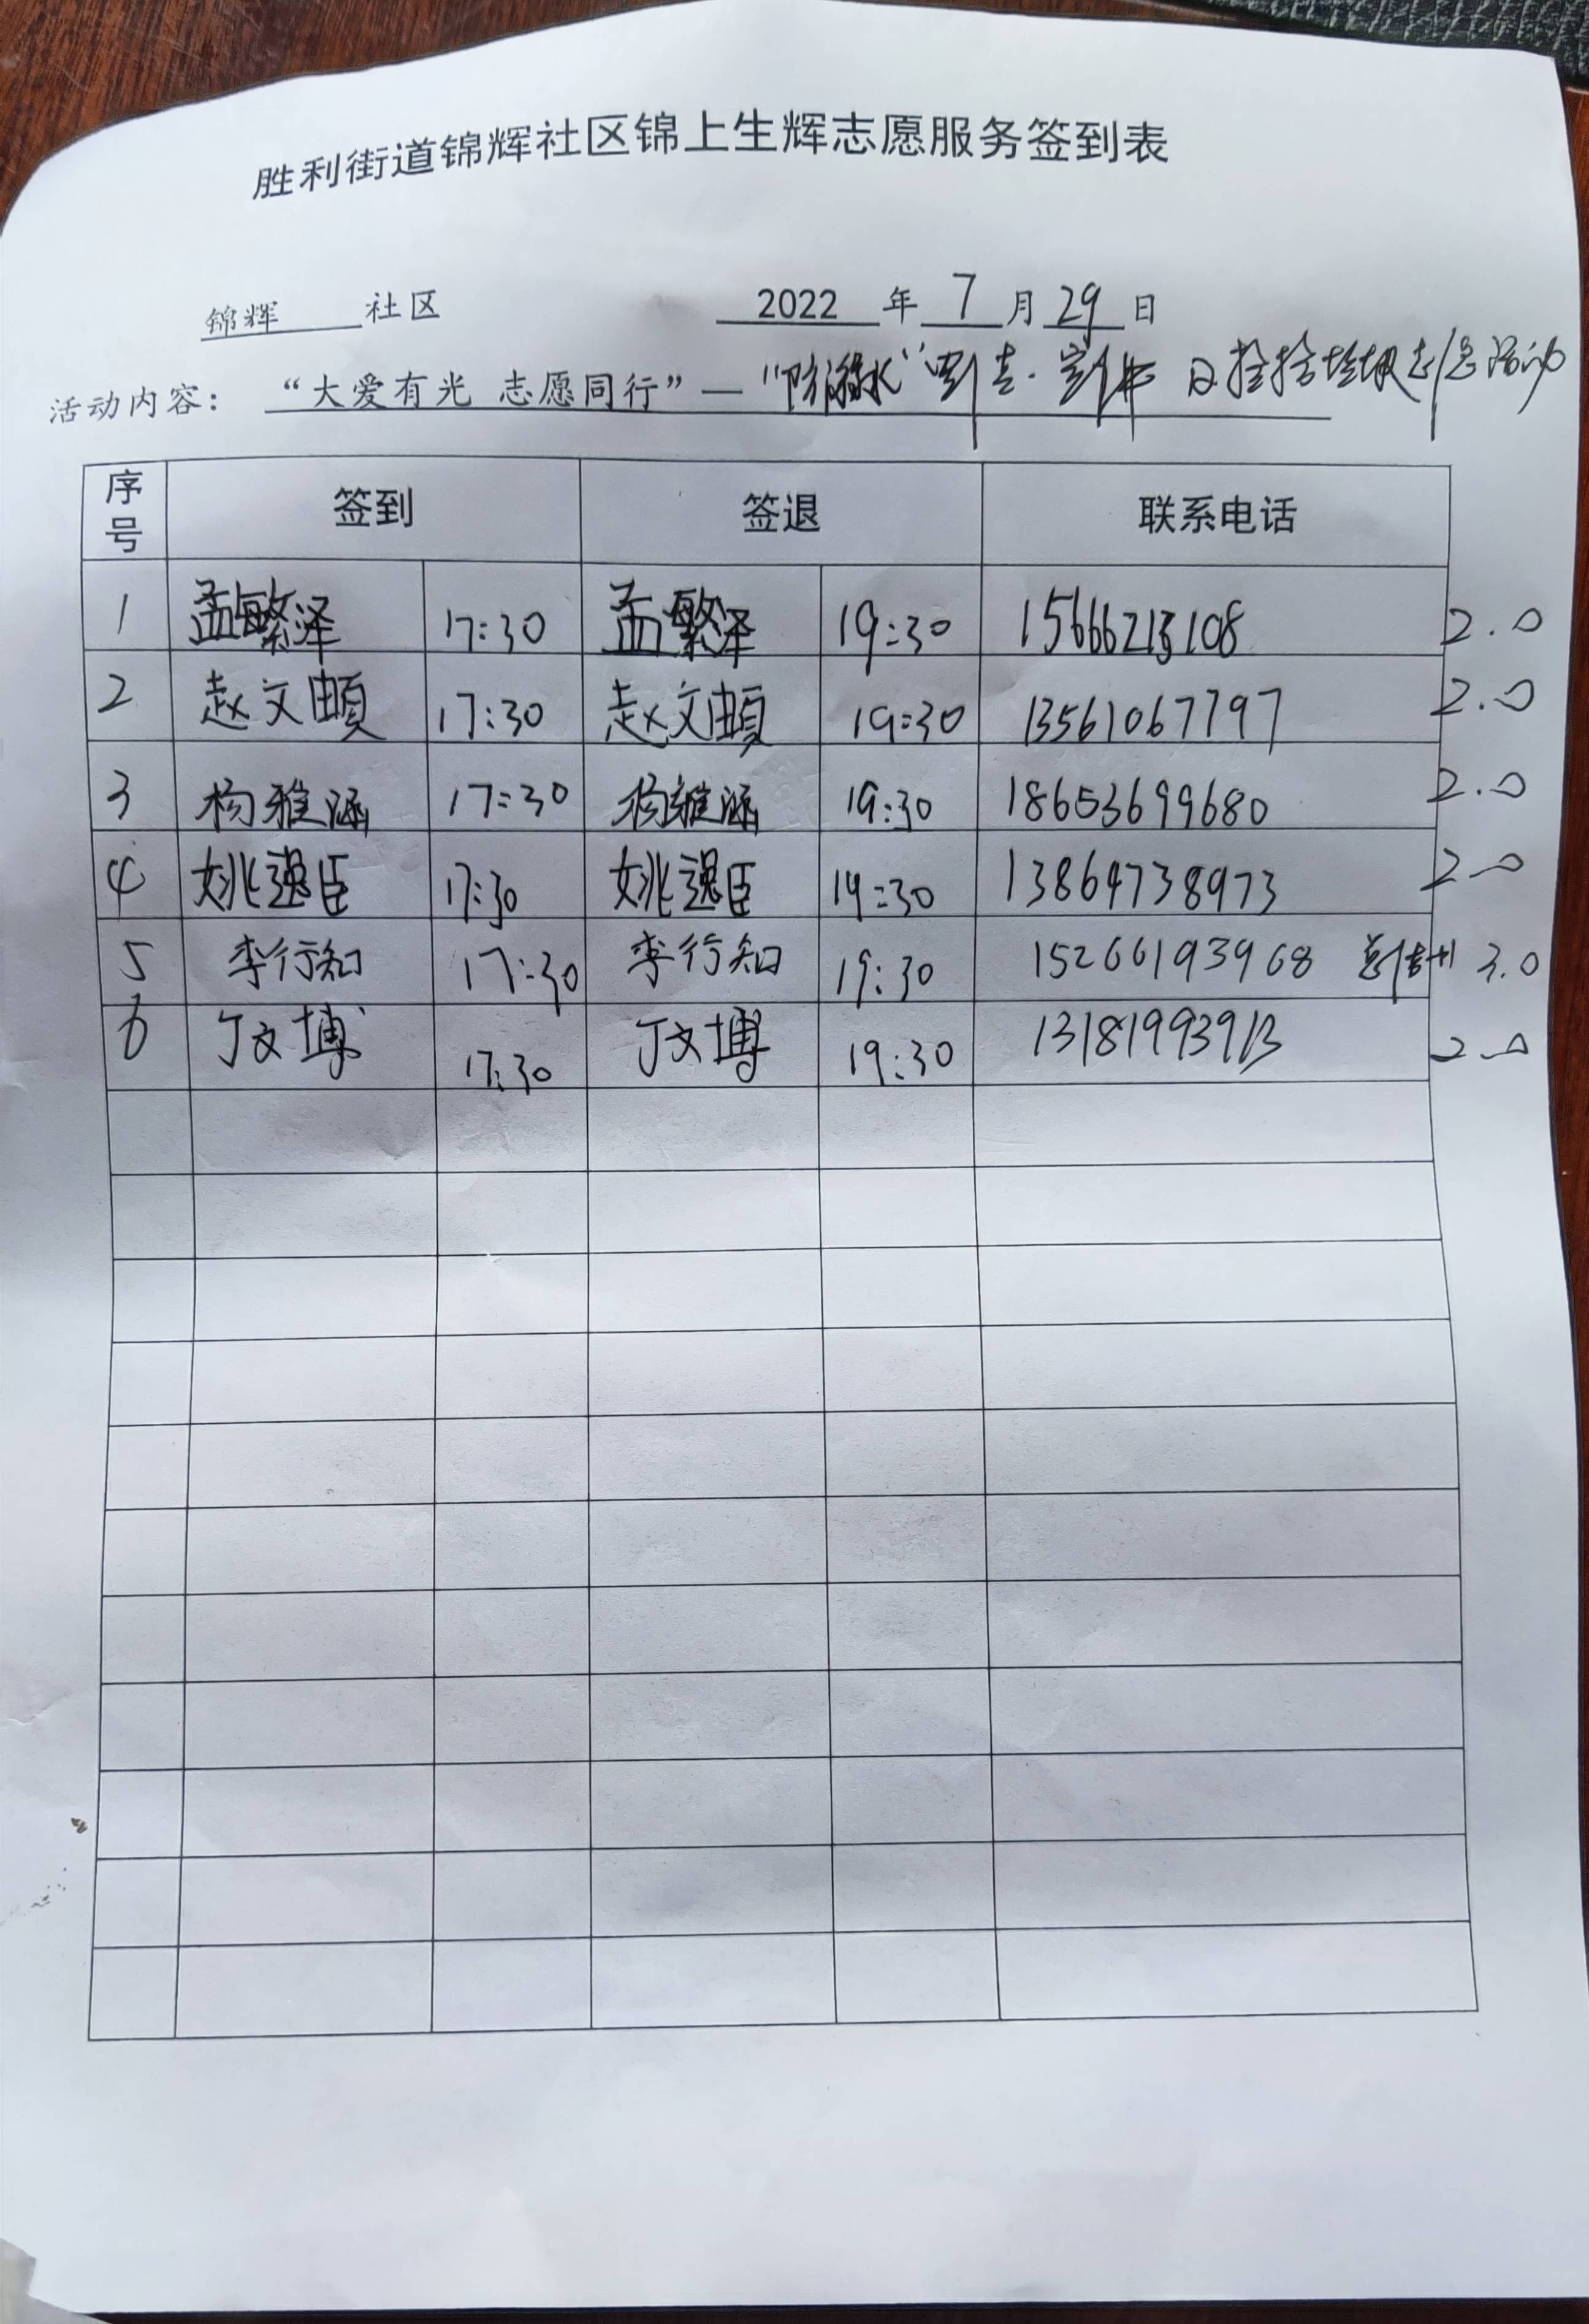 胜利街道锦辉社区锦上生辉志愿服务签到表
锦辉 社区 2022 年 7 月 29 日
活动内容： “大爱有光 志愿同行”— “防溺水” 及捡拾垃圾志愿活动
序号 签到 签退 联系电话
1 孟繁泽 17:30 孟繁泽 19:30 2.0
2 赵文 17:30 赵文 19:30 13561067797 2.0
3 杨雅涵 17:30 杨雅涵 19:30 18653699680 2.0
4 姚逸臣 17:30 姚逸臣 19:30 13864738973 2.0
5 李行知 17:30 李行知 19:30 15266193968 3.0
6 丁文博 17:30 丁文博 19:30 13181993913 2.0